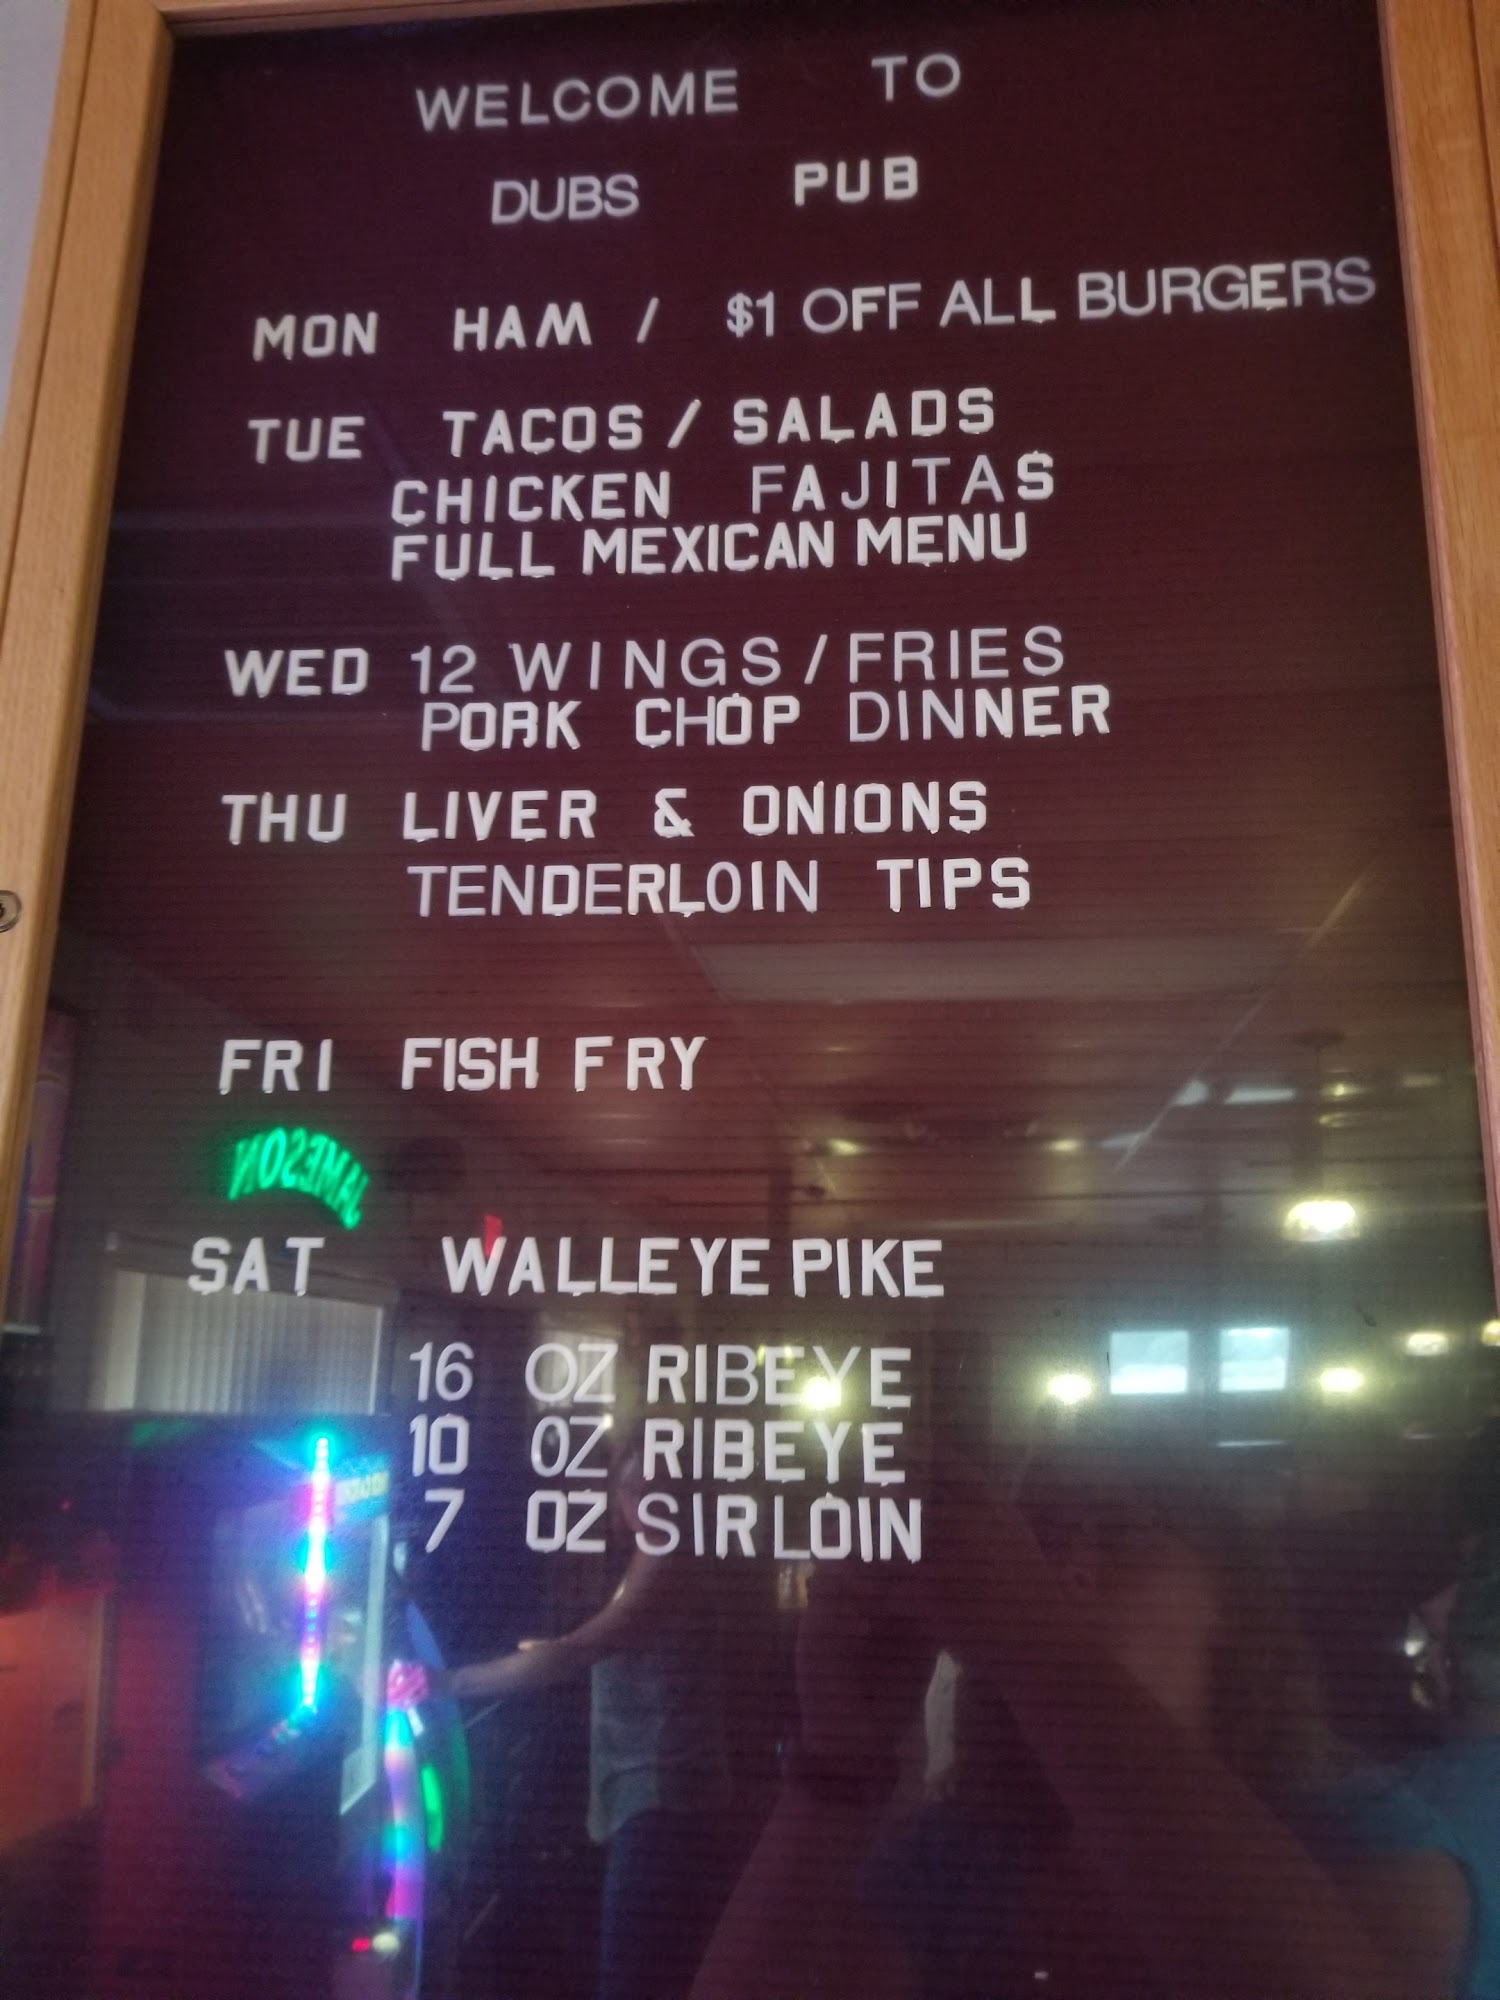 WELCOME TO
DUBS PUB
MON HAM / $1 OFF ALL BURGERS
TUE TACOS / SALADS
CHICKEN FAJITAS
FULL MEXICAN MENU
WED 12 WINGS / FRIES
PORK CHOP DINNER
THU LIVER & ONIONS
TENDERLOIN TIPS
FRI FISH FRY
JAMESON
SAT WALLEYE PIKE
16 OZ RIBEYE
10 OZ RIBEYE
7 OZ SIRLOIN